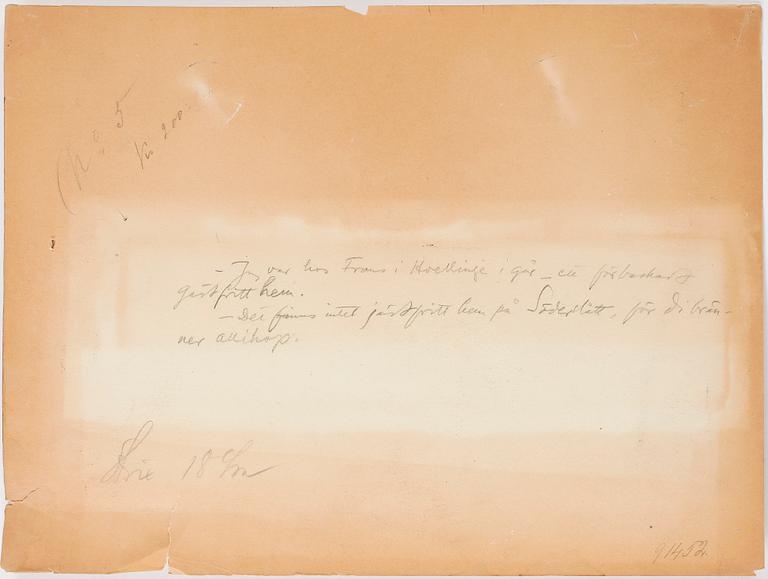 No 5
Kr 200:
– Jag var hos Frans i Hvellinge i går – ett förbaskadt
gästfritt hem.
– Det finns intet jästfritt hem på Söderslätt, för di brän-
ner allihop.
18 cm
91452